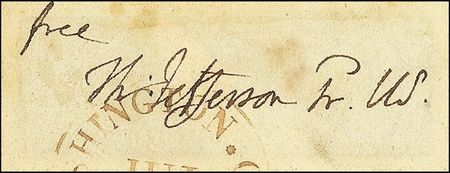 free
Th: Jefferson Pr. US.
HINGTON